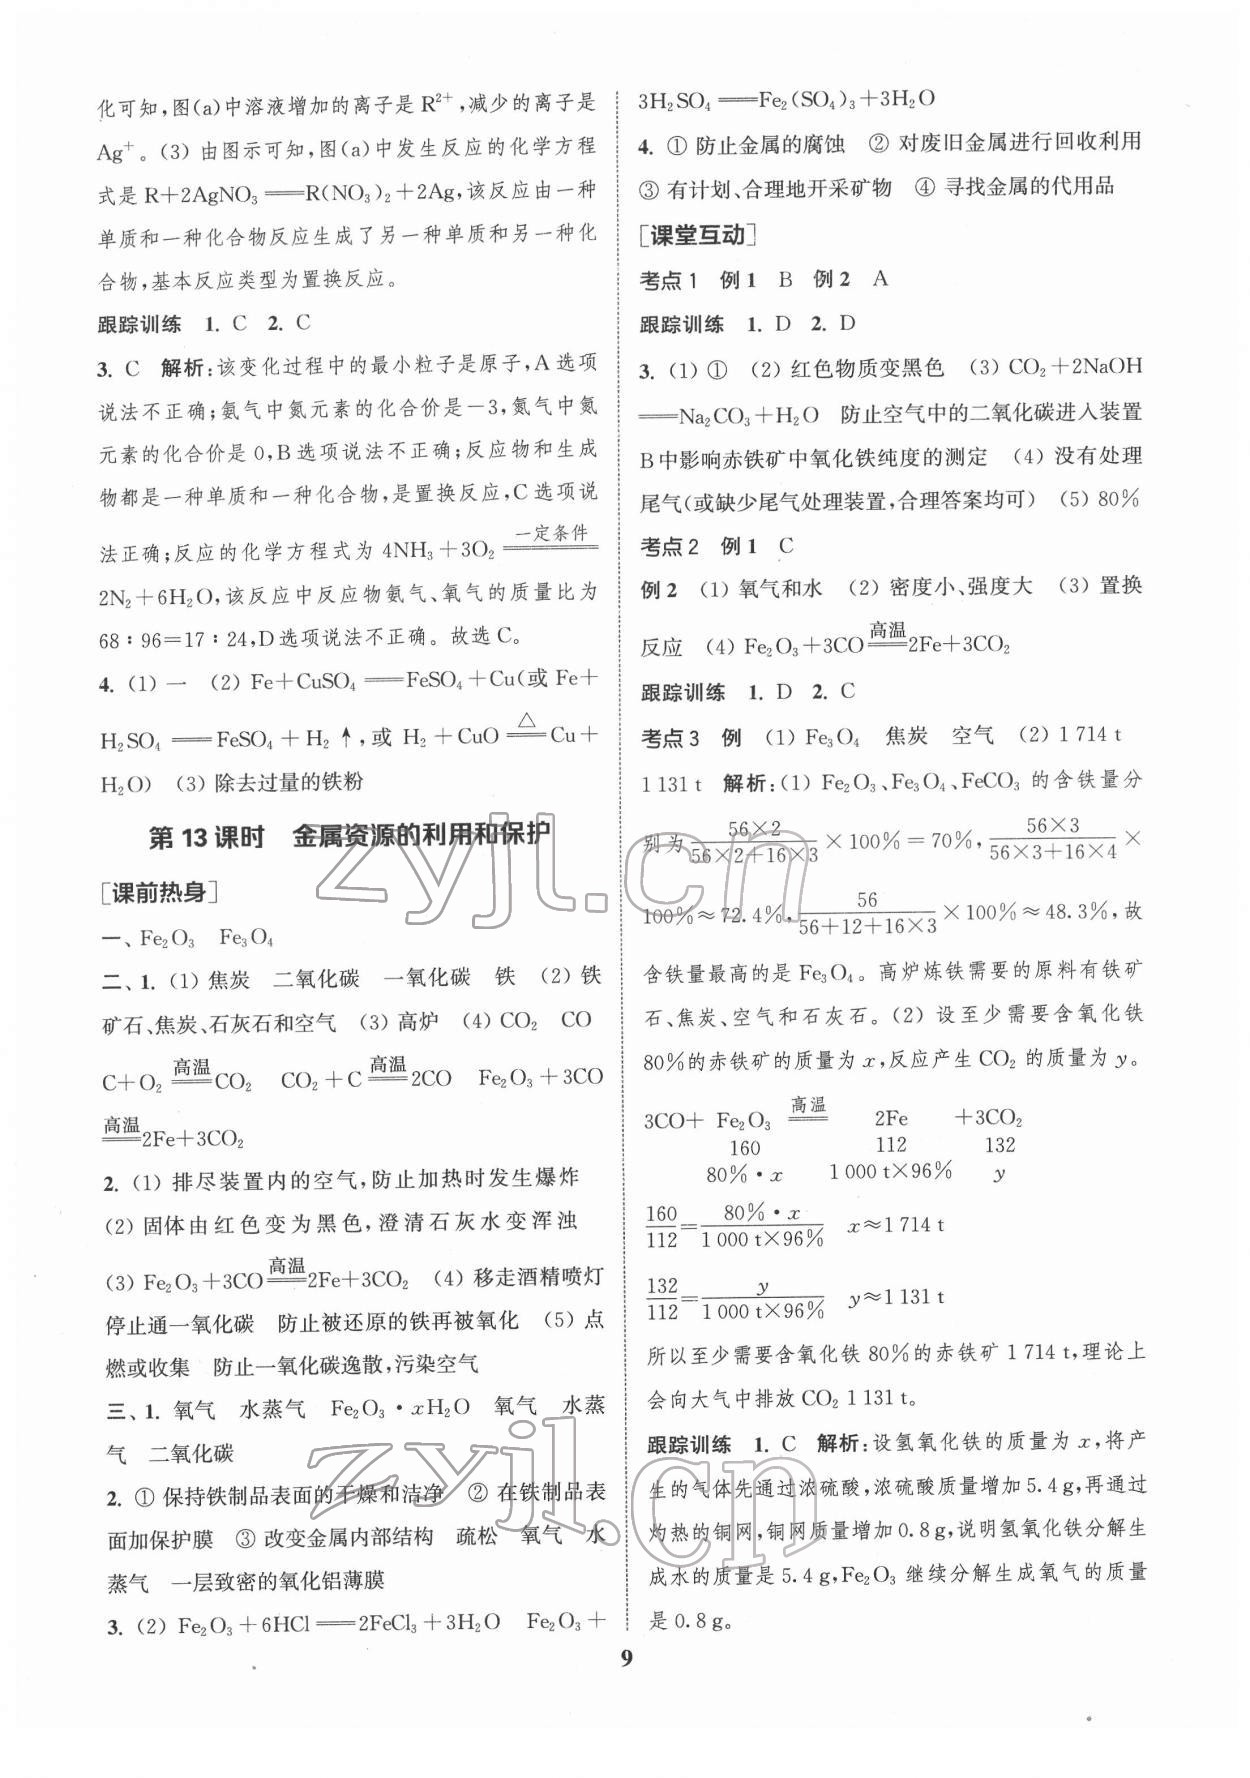 化可知,图(a)中溶液增加的离子是 R²⁺,减少的离子是
Ag⁺。(3) 由图示可知,图(a)中发生反应的化学方程
式是 R+2AgNO₃══R(NO₃)₂+2Ag,该反应由一种
单质和一种化合物反应生成了另一种单质和另一种化
合物,基本反应类型为置换反应。
跟踪训练 1. C 2. C
3. C 解析:该变化过程中的最小粒子是原子,A选项
说法不正确;氨气中氮元素的化合价是-3,氮气中氮
元素的化合价是 0,B选项说法不正确;反应物和生成
物都是一种单质和一种化合物,是置换反应,C选项说
法正确;反应的化学方程式为 4NH₃+3O₂ ══一定条件══
2N₂+6H₂O,该反应中反应物氨气、氧气的质量比为
68∶96=17∶24,D选项说法不正确。故选C。
4. (1) 一 (2) Fe+CuSO₄══FeSO₄+Cu(或 Fe+
H₂SO₄══FeSO₄+H₂↑,或 H₂+CuO══△══Cu+
H₂O) (3) 除去过量的铁粉
第 13 课时 金属资源的利用和保护
[课前热身]
一、Fe₂O₃ Fe₃O₄
二、1. (1) 焦炭 二氧化碳 一氧化碳 铁 (2) 铁
矿石、焦炭、石灰石和空气 (3) 高炉 (4) CO₂ CO
C+O₂══高温══CO₂ CO₂+C══高温══2CO Fe₂O₃+3CO
══高温══2Fe+3CO₂
2. (1) 排尽装置内的空气,防止加热时发生爆炸
(2) 固体由红色变为黑色,澄清石灰水变浑浊
(3) Fe₂O₃+3CO══高温══2Fe+3CO₂ (4) 移走酒精喷灯
停止通一氧化碳 防止被还原的铁再被氧化 (5) 点
燃或收集 防止一氧化碳逸散,污染空气
三、1. 氧气 水蒸气 Fe₂O₃·xH₂O 氧气 水蒸
气 二氧化碳
2. ① 保持铁制品表面的干燥和洁净 ② 在铁制品表
面加保护膜 ③ 改变金属内部结构 疏松 氧气 水
蒸气 一层致密的氧化铝薄膜
3. (2) Fe₂O₃+6HCl══2FeCl₃+3H₂O Fe₂O₃+
3H₂SO₄══Fe₂(SO₄)₃+3H₂O
4. ① 防止金属的腐蚀 ② 对废旧金属进行回收利用
③ 有计划、合理地开采矿物 ④ 寻找金属的代用品
[课堂互动]
考点1 例1 B 例2 A
跟踪训练 1. D 2. D
3. (1) ① (2) 红色物质变黑色 (3) CO₂+2NaOH
══Na₂CO₃+H₂O 防止空气中的二氧化碳进入装置
B中影响赤铁矿中氧化铁纯度的测定 (4) 没有处理
尾气(或缺少尾气处理装置,合理答案均可) (5) 80%
考点2 例1 C
例2 (1) 氧气和水 (2) 密度小、强度大 (3) 置换
反应 (4) Fe₂O₃+3CO══高温══2Fe+3CO₂
跟踪训练 1. D 2. C
考点3 例 (1) Fe₃O₄ 焦炭 空气 (2) 1 714 t
1 131 t 解析:(1) Fe₂O₃、Fe₃O₄、FeCO₃ 的含铁量分
别为 (56×2)/(56×2+16×3) ×100%=70%, (56×3)/(56×3+16×4) ×
100%≈72.4%, 56/(56+12+16×3) ×100%≈48.3%,故
含铁量最高的是 Fe₃O₄。高炉炼铁需要的原料有铁矿
石、焦炭、空气和石灰石。(2) 设至少需要含氧化铁
80%的赤铁矿的质量为 x,反应产生 CO₂ 的质量为 y。
3CO+ Fe₂O₃ ══高温══ 2Fe +3CO₂
160 112 132
80%·x 1 000 t×96% y
160/112=80%·x/(1 000 t×96%) x≈1 714 t
132/112=y/(1 000 t×96%) y≈1 131 t
所以至少需要含氧化铁 80%的赤铁矿 1 714 t,理论上
会向大气中排放 CO₂ 1 131 t。
跟踪训练 1. C 解析:设氢氧化铁的质量为 x,将产
生的气体先通过浓硫酸,浓硫酸质量增加 5.4 g,再通过
灼热的铜网,铜网质量增加 0.8 g,说明氢氧化铁分解生
成水的质量是 5.4 g,Fe₂O₃ 继续分解生成氧气的质量
是 0.8 g。
9
zyjl.cn
zyjl.cn